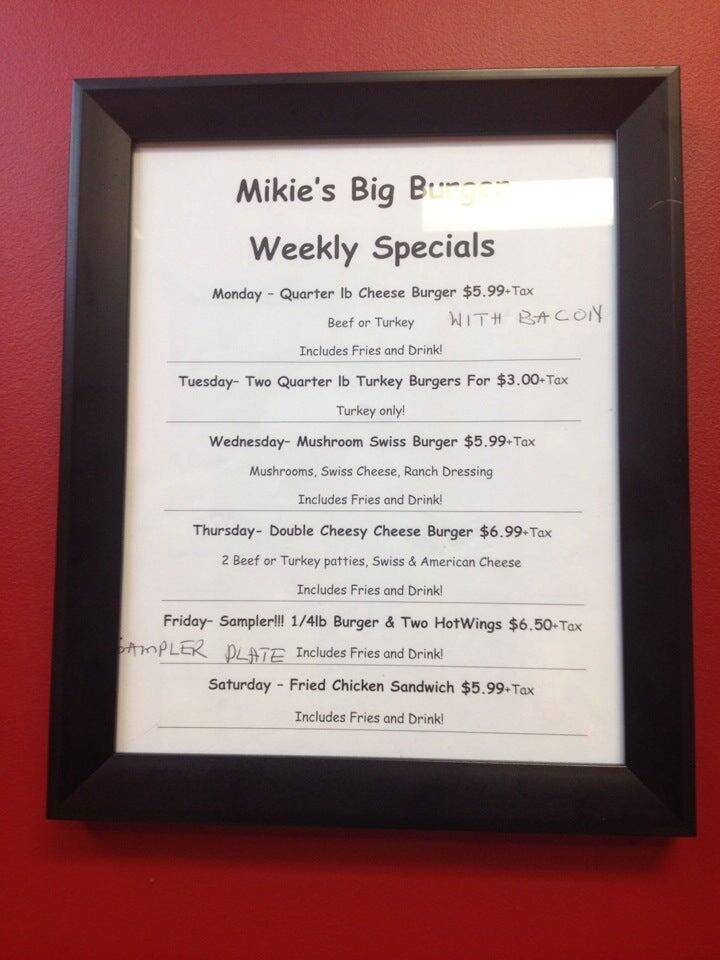 Mikie's Big Burger
Weekly Specials
Monday - Quarter lb Cheese Burger $5.99+Tax
Beef or Turkey WITH BACON
Includes Fries and Drink!
Tuesday- Two Quarter lb Turkey Burgers For $3.00+Tax
Turkey only!
Wednesday- Mushroom Swiss Burger $5.99+Tax
Mushrooms, Swiss Cheese, Ranch Dressing
Includes Fries and Drink!
Thursday- Double Cheesy Cheese Burger $6.99+Tax
2 Beef or Turkey patties, Swiss & American Cheese
Includes Fries and Drink!
Friday- Sampler!!! 1/4lb Burger & Two HotWings $6.50+Tax
SAMPLER PLATE Includes Fries and Drink!
Saturday - Fried Chicken Sandwich $5.99+Tax
Includes Fries and Drink!